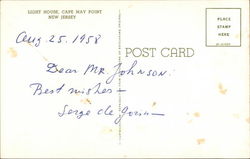 LIGHT HOUSE, CAPE MAY POINT
NEW JERSEY
Aug 25, 1958
POST CARD
PLACE
STAMP
HERE
Dear Mr. Johnson:
Best wishes —
Serge de